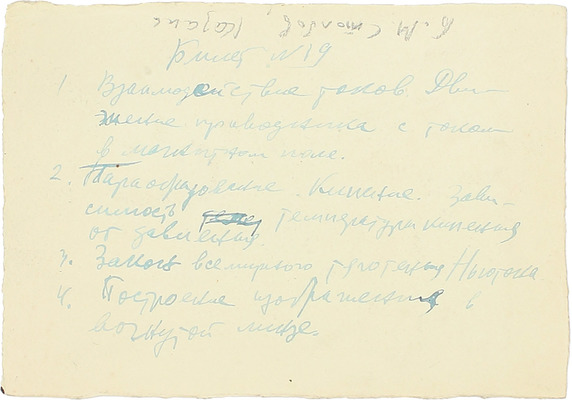 Билет N 19
1. Взаимодействие токов. Дви-
жение проводника с током
в магнитном поле.
2. Парообразование. Кипение. Зави-
симость температуры кипения
от давления
3. Закон всемирного тяготения Ньютона
4. Построение изображения в
вогнутой линзе.